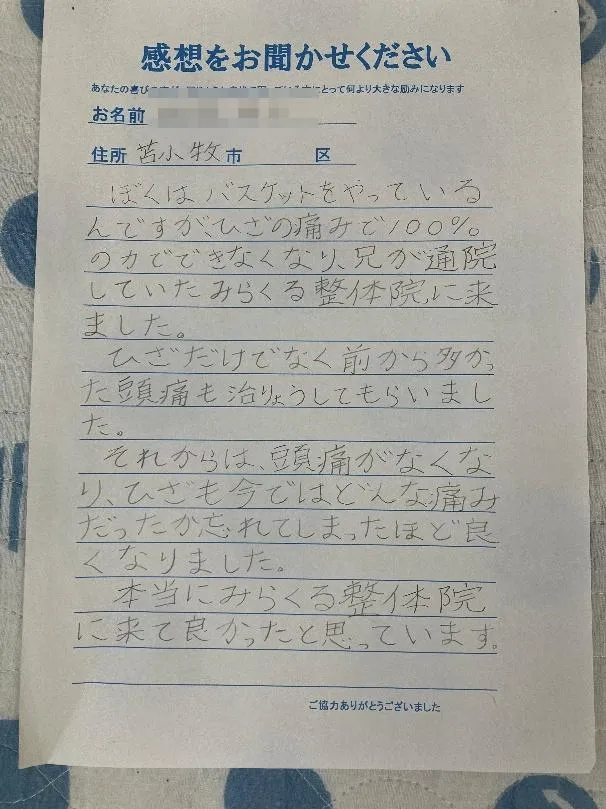 感想をお聞かせください
あなたの喜びの にとって何より大きな励みになります
お名前
住所 苫小牧市 区
ぼくはバスケットをやっている
んですが、ひざの痛みで100%
の力でできなくなり、兄が通院
していたみらくる整体院に来
ました。
ひざだけでなく前から多かっ
た頭痛も治りょうしてもらいまし
た。
それからは、頭痛がなくな
り、ひざも今ではどんな痛み
だったか忘れてしまったほど良
くなりました。
本当にみらくる整体院
に来て良かったと思っています。
ご協力ありがとうございました